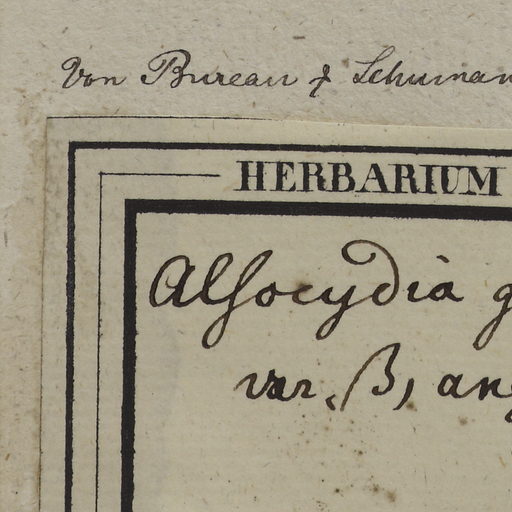 Von Bureau & Schuman
HERBARIUM
Alsocydia g
var. β, ang